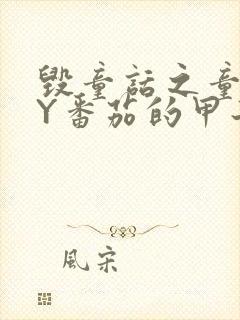 毁童话之童
Y番茄的甲
風宋